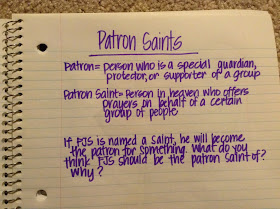 Patron Saints
Patron= person who is a special guardian,
protector, or supporter of a group
Patron Saint= Person in heaven who offers
prayers on behalf of a certain
group of people
If FJS is named a saint, he will become
the patron for something. What do you
think FJS should be the patron saint of?
Why?